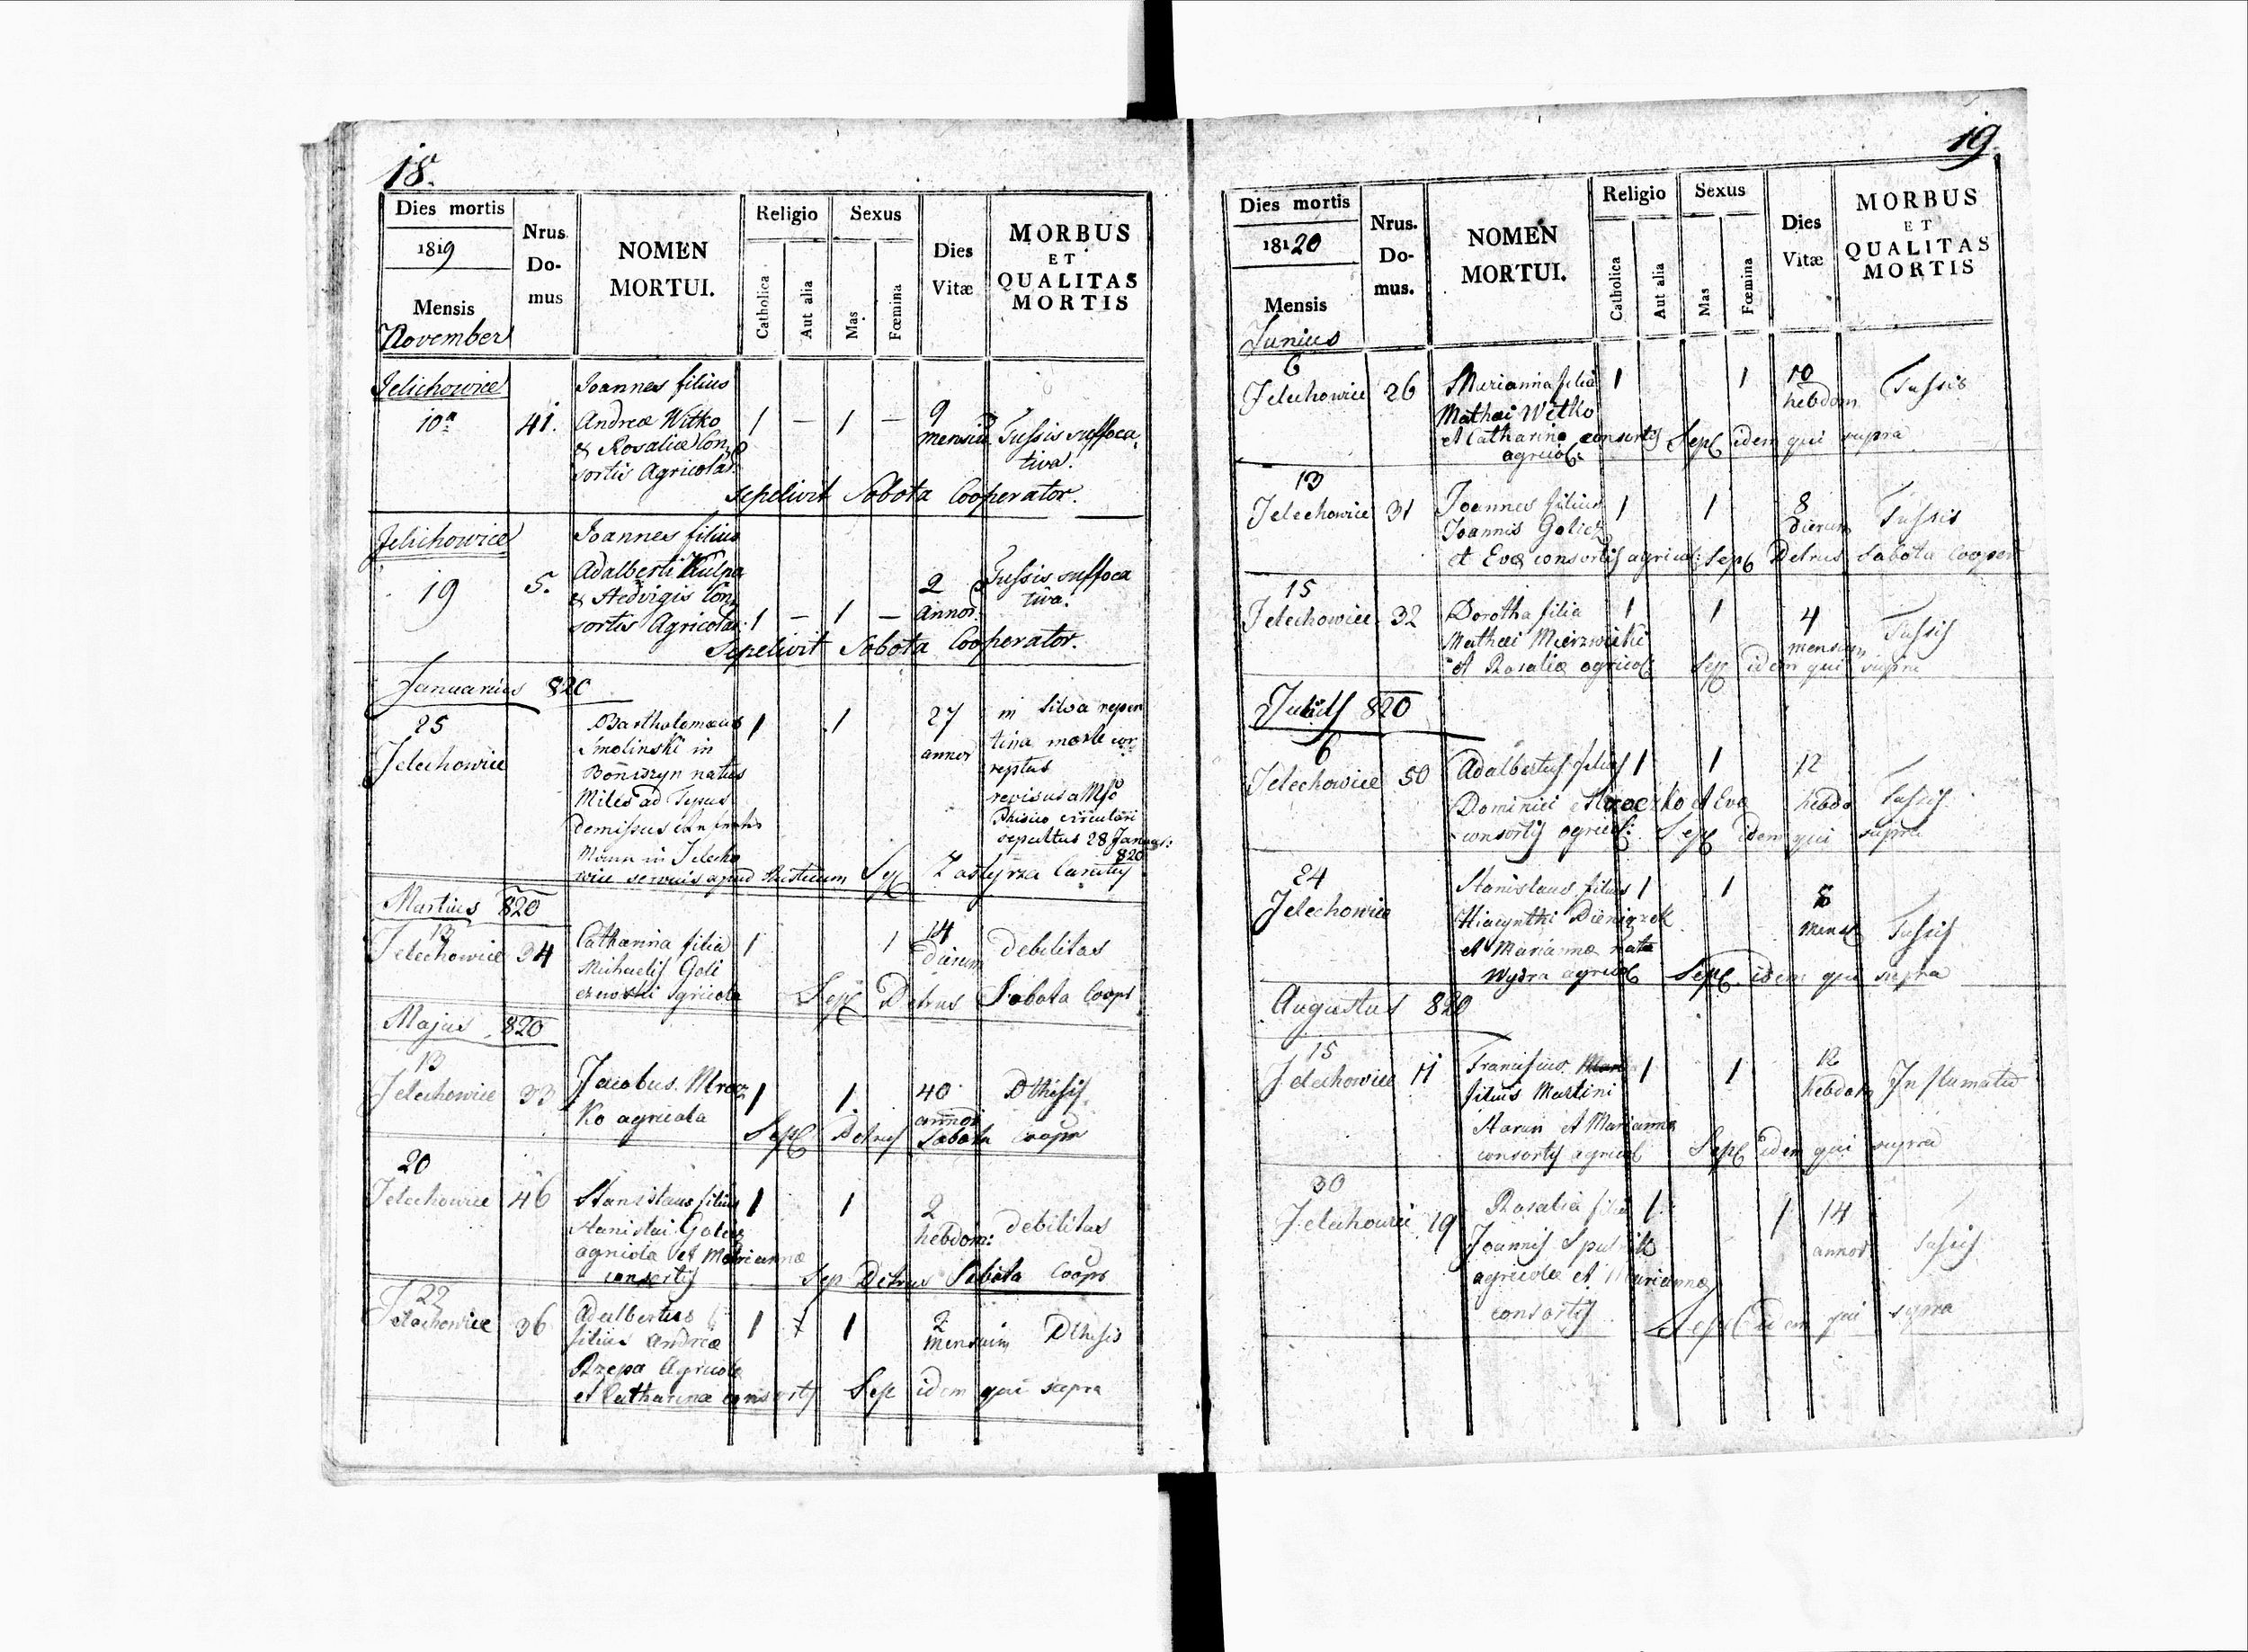 18.
Dies mortis
1819
Mensis
November
Nrus
Do-
mus
NOMEN
MORTUI.
Religio
Catholica
Aut alia
Sexus
Mas
Fœmina
Dies
Vitæ
MORBUS
ET
QUALITAS
MORTIS
Jelichowice
10a
41.
Joannes filius
Andreæ Witko
& Rosaliæ Con
sortis Agricolar:
1 — 1 —
9
mensiu
Tussis suffoca
tiva.
sepelivit Sobota Cooperator.
Jelichowice
19
5.
Joannes filius
Adalberti Kulpa
& Hedvigis Con
sortis Agricolar:
1 — 1 —
2
annor:
Tussis suffoca
tiva.
Sepelivit Sobota Cooperator.
Januarius 820
25
Jelechowice
Bartholomæus
Smolinski in
natus
Miles ad
demissus
in Jelecho
wice apud Rusticum
1 1
27
annor
in Silva repen
tina morte cor
reptus
revisus a
Phisico circulari
sepultus 28 Januar:
820
Sep
Martius 820
13
Jelechowice
34
Catharina filia
Michaelis Goli
agricola
1 1
14
dierum
debilitas
Sep Petrus Sobota Coopr
Majus 820
13
Jelechowice
33
Jacobus Mrocz
ko agricola
1 1
40
annor
Pthisis
Sep Petrus Sobota Coopr
20
Jelechowice
46
Stanislaus filius
Stanislai Golicz
agricola et Mariannæ
consortis
1 1
2
hebdom:
debilitas
Sep Petrus Sobota Coopr
22
Jelechowice
36
Adalbertus
filius Andreæ
Rzepa Agricola
et Catharinæ consortis
1 1
2
mensium
Pthisis
Sep idem qui supra
19.
Dies mortis
18120
Mensis
Junius
Nrus.
Do-
mus.
NOMEN
MORTUI.
Religio
Catholica
Aut alia
Sexus
Mas
Fœmina
Dies
Vitæ
MORBUS
ET
QUALITAS
MORTIS
6
Jelechowice
26
Marianna filia
Mathæi Witko
et Catharinæ consortis
agricol:
1 1
10
hebdom
Tussis
Sep idem qui supra
13
Jelechowice
31
Joannes filius
Joannis Golicz
et Evæ consortis agricol:
1 1
8
dierum
Tussis
Sep Petrus Sobota Cooper
15
Jelechowice
32
Dorotha filia
Mathæi Mierzwicki
et Rosaliæ agricol:
1 1
4
mensium
Tussis
Sep idem qui supra
Julius 820
6
Jelechowice
50
Adalbertus filius
Dominici Mroczko et Evæ
consortis agricol:
1 1
12
hebdo
Tussis
Sep idem qui supra
24
Jelechowice
Stanislaus filius
Hiacynthi Pieniązek
et Mariannæ nata
Wydra agricol
1 1
mens
Tussis
Sep idem qui supra
Augustus 820
15
Jelechowice
11
Franciscus
filius Martini
Haran et Marianna
consortis agricol
1 1
12
hebdom
Sep idem qui supra
30
Jelechowice
19
Rosalia filia
Joannis
agricolæ et Mariannæ
consortis
1 1
14
annor
Tussis
Sep idem qui supra